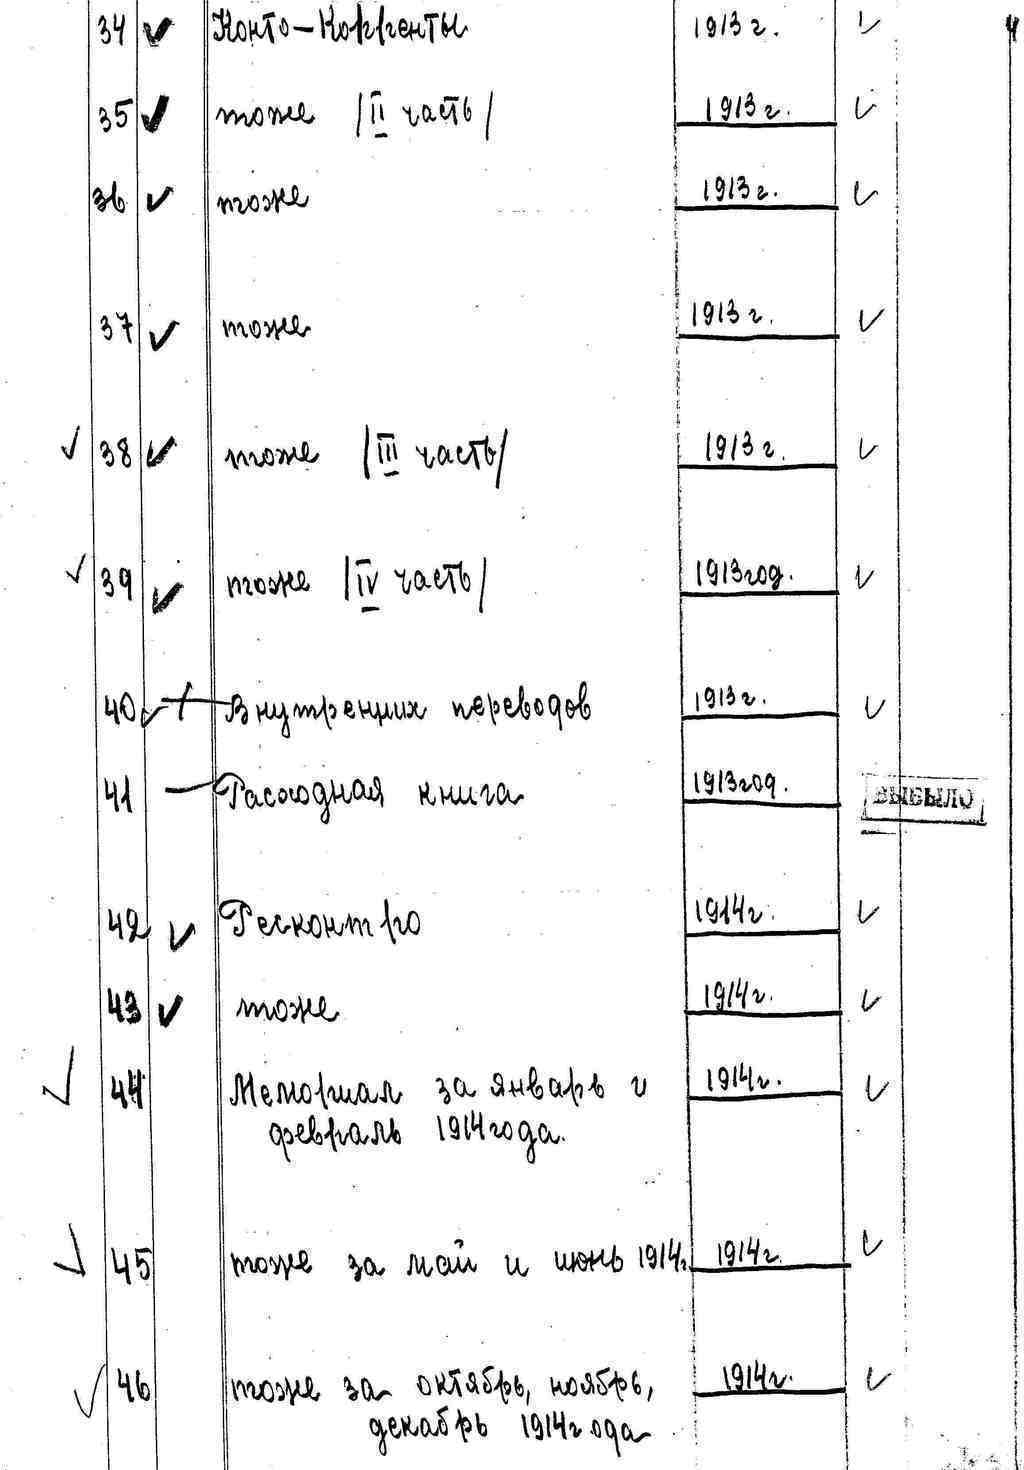 4
34 Конто-Корренты 1913 г.
35 тоже /II часть/ 1913 г.
36 тоже 1913 г.
37 тоже 1913 г.
38 тоже /III часть/ 1913 г.
39 тоже /IV часть/ 1913 год.
40 Внутренних переводов 1913 г.
41 Расходная книга 1913 год. ВЫБЫЛО
42 Ресконтро 1914 г.
43 тоже 1914 г.
44 Мемориал за январь и 1914 г.
февраль 1914 года.
45 тоже за май и июнь 1914 г. 1914 г.
46 тоже за октябрь, ноябрь, 1914 г.
декабрь 1914 года